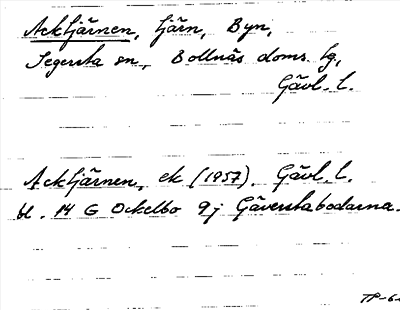 Acktjärnen, tjärn, Byn,
Segersta sn, Bollnäs doms. tg,
Gävl. l.
Acktjärnen, ek (1957). Gävl. l.
bl. 14 G Ockelbo 9j Gäverstabodarna.
TP-6-